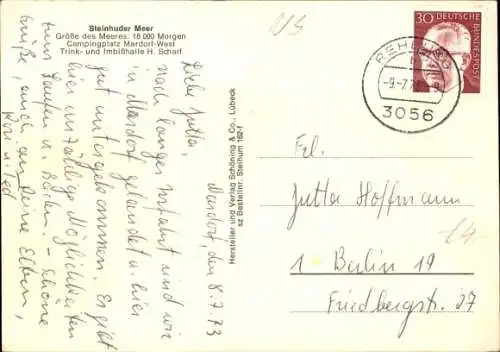 Steinhuder Meer
Größe des Meeres: 18 000 Morgen
Campingplatz Mardorf-West
Trink- und Imbißhalte H. Scharf
Mardorf, den 8.7.73
Liebe Jutta,
nach langer Irrfahrt sind wir
in Mardorf gelandet u. hier
gut untergekommen. Es gibt
hier unzählige Möglichkeiten
zum Laufen u. Baden. - Schöne
Grüße, auch an deine Eltern,
Hersteller und Verlag Schöning & Co., Lübeck
sz Bestellnr. Steihum 162-1
30 DEUTSCHE BUNDESPOST
REHBURG
b
3056
Frl.
Jutta Hoffmann
1 Berlin 19
Friedbergstr. 27